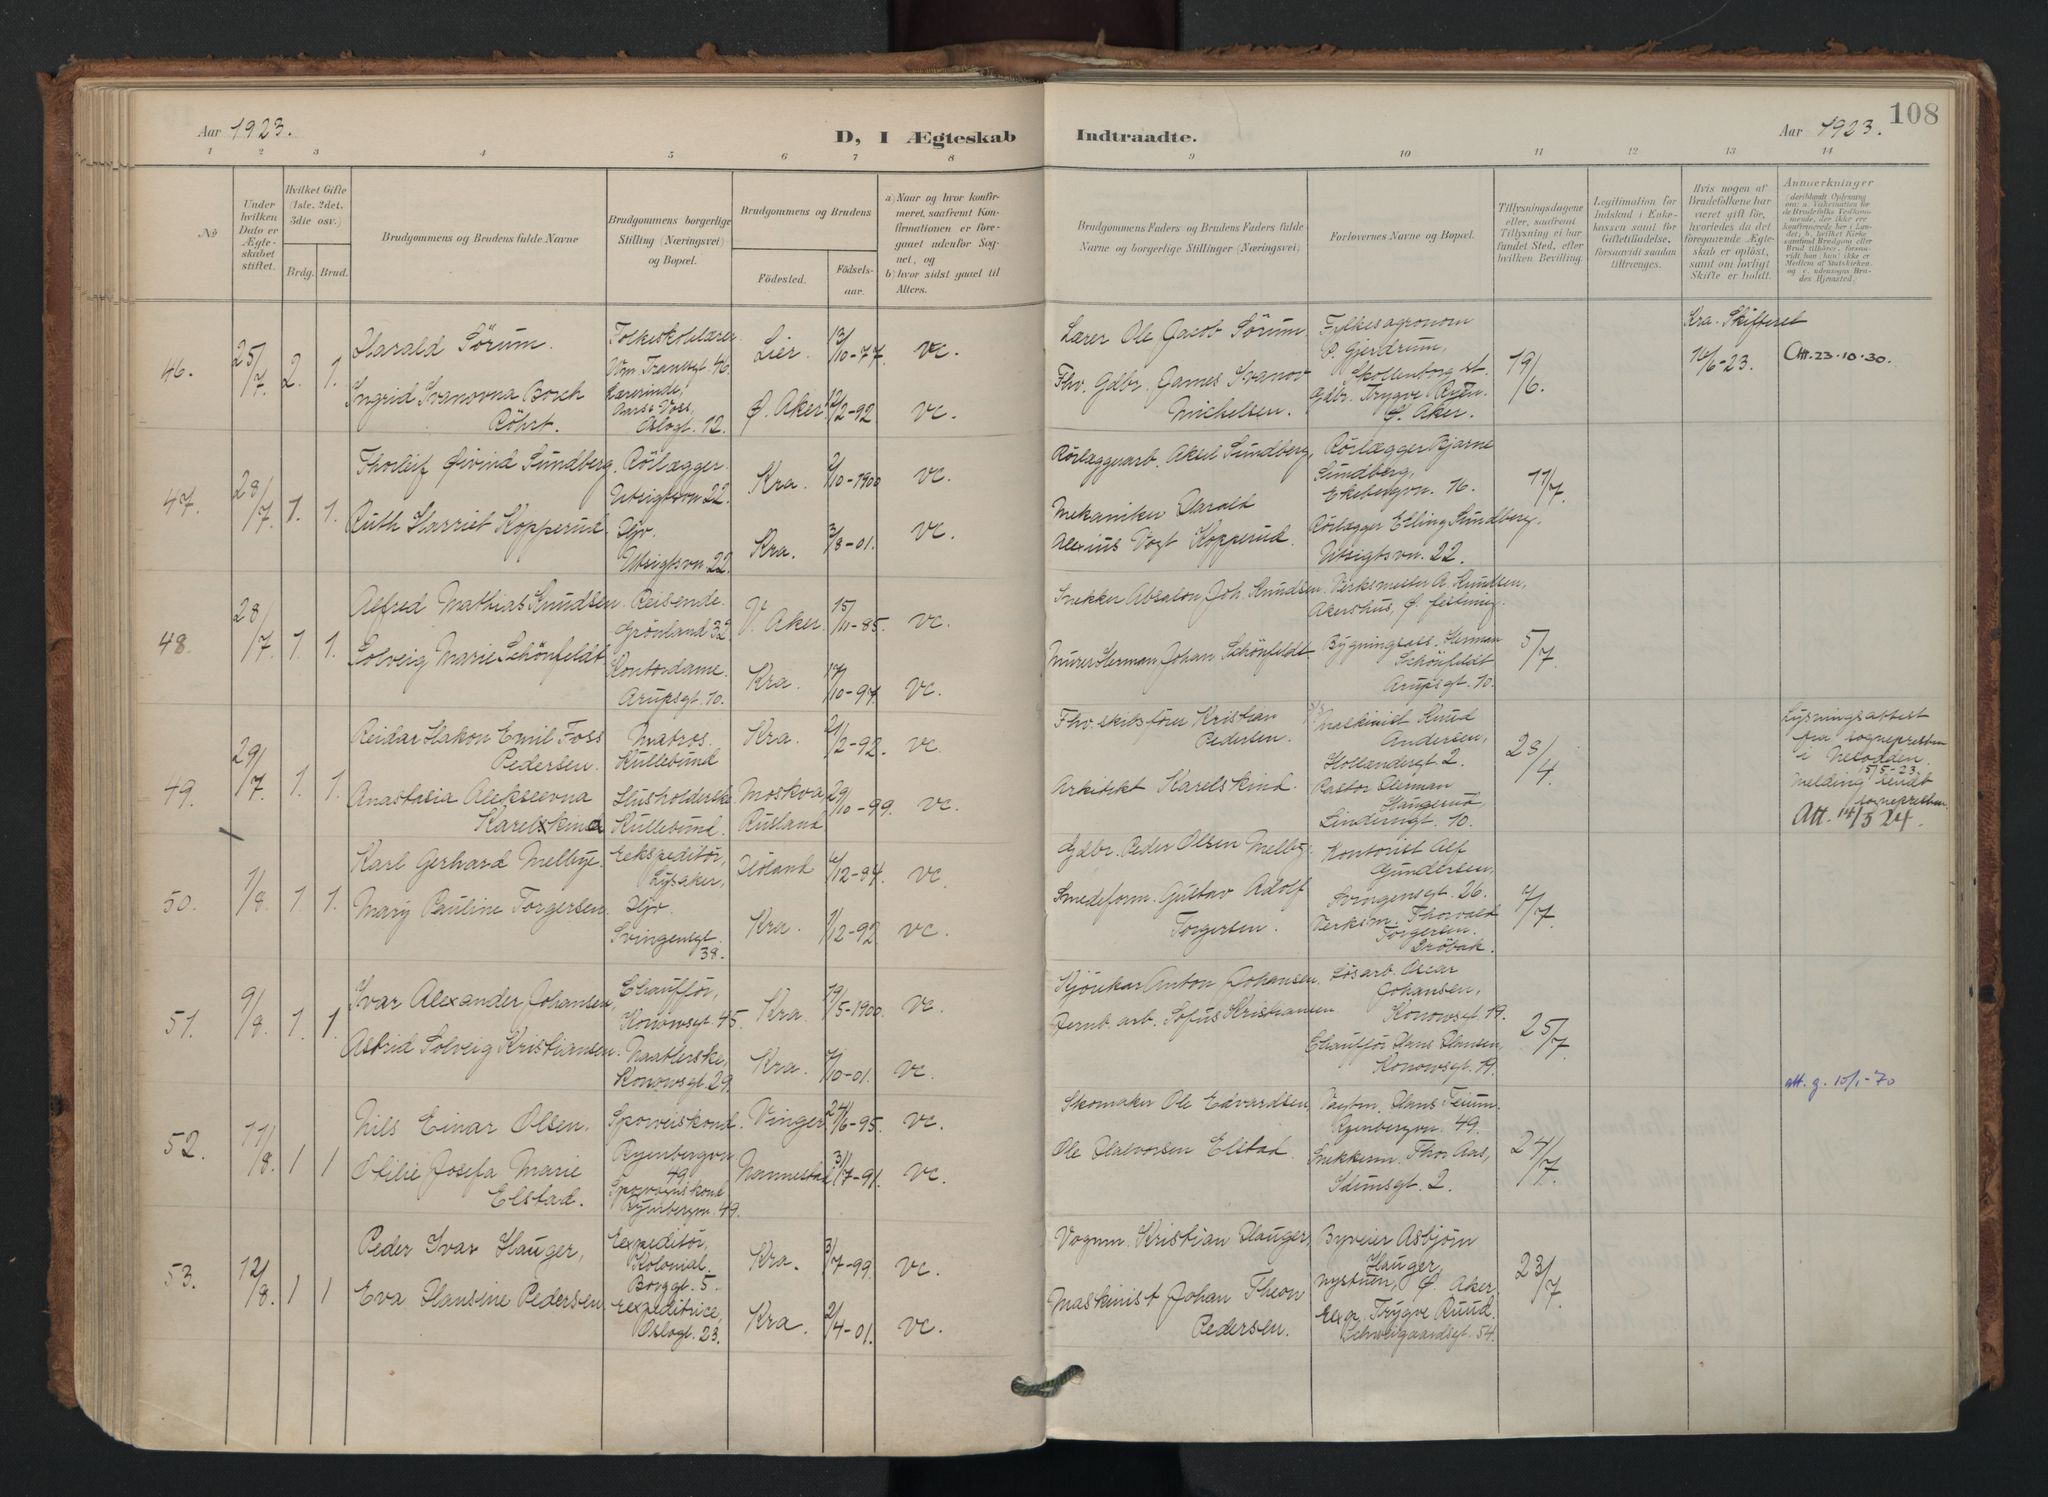 108
Aar 1923.
D, I Ægteskab
Indtraadte.
Aar 1923.
1 2 3 4 5 6 7 8 9 10 11 12 13 14
No
Under hvilken Dato er Ægteskabet stiftet.
Hvilket Gifte (1ste, 2det, 3die osv.)
Brdg. Brud.
Brudgommens og Brudens fulde Navne
Brudgommens borgerlige Stilling (Næringsvei) og Bopæl.
Brudgommens og Brudens
Födested.
Födselsaar.
a) Naar og hvor konfirmeret, saafremt Konfirmationen er foregaaet udenfor Sognet, og
b) hvor sidst gaaet til Alters.
Brudgommens Faders og Brudens Faders fulde Navne og borgerlige Stillinger (Næringsvei)
Forlovernes Navne og Bopæl.
Tillysningsdagene eller, saafremt Tillysning ei har fundet Sted, efter hvilken Bevilling.
Legitimation for Indskud i Enkekassen samt for Giftetilladelse, forsaavidt saadan tiltrænges.
Hvis nogen af Brudefolkene har været gift før, hvorledes da det foregaaende Ægteskab er opløst, samt om lovligt Skifte er holdt.
Anmerkninger
46. 25/7 2. 1.
Harald Sörum.
Folkeskolelærer
Lier. 13/10-77. vc.
Lærer Ole Jacob Sörum.
Fylkesagronom
P. Gjerdrum,
Skollenborg st.
19/6.
Kra. Skifteret
16/6-23.
Att. 23.10.30.
Ingrid Ivanovna Borch
Röhrt.
Lærerinde,
Oslogt. 12.
Ø. Aker 12/2-92 vc.
Fhv. Gdbr. James Ivanov
Michelsen.
Gdbr. Trygve Ryen.
Ø. Aker.
47. 28/7. 1. 1.
Thorleif Øivind Sundberg.
Rörlægger.
Utsigtsvn. 22.
Kra. 2/10-1900 vc.
Rörlæggerarb. Aksel Sundberg,
Rörlægger Bjarne
Sundberg,
Ekebergvn. 16.
11/7.
Ruth Harriet Kopperud.
Hjv.
Utsigtsvn. 22.
Kra. 3/8-01. vc.
Mekaniker Harald
Alexius Vogt Kopperud.
Rörlægger Elling Sundberg,
Utsigtsvn. 22.
48. 28/7. 1 1.
Alfred Mathias Knudsen.
Reisende.
Grönland 32
V. Aker. 15/11-85. vc.
Snekker Absalon Joh. Knudsen.
Verksmester A. Knudsen,
Akershus, Ø. festning.
5/7.
Solveig Marie Schönfeldt.
Kontordame.
Arupsgt. 10.
Kra. 17/10-97. vc.
Murer Herman Johan Schönfeldt.
Bygningsass. Herman
Schönfeldt
Arupsgt. 10.
49. 29/7. 1. 1.
Reidar Hakon Emil Foss
Pedersen.
Matros.
Hullebund
Kra. 21/2-92. vc.
Fhv. skibsförer Kristian
Pedersen.
Maskinist Knud
Andersen,
Hollændergt 2.
23/4.
Lysningsattest
fra sognepresten
i Nesodden.
15/5-23.
Melding sendt
sognepresten.
Att. 14/3 24.
Anastasia Alekseevna
Karelskind
Husholderske
Hullebund.
Moskva,
Rusland
29/10-99. vc.
Arkitekt Karelskind.
Pastor Herman
Haugerud,
Linderngt. 10.
50. 1/8. 1 1.
Karl Gerhard Melbye.
Ekspeditör,
Lysaker,
Höland 6/12-94. vc.
Gdbr. Peder Olsen Melby.
Kontorist Alf
Gundersen,
Svingensgt 26.
7/7.
Mary Pauline Torgersen.
Hjv.
Svingensgt.
38.
Kra. 1/12-92. vc.
Smedeform. Gustav Adolf
Torgersen.
Verksm. Thorvald
Torgersen.
Dröbak.
51. 9/8. 1. 1.
Ivar Alexander Johansen,
Chaufför,
Konowsgt. 45.
Kra. 19/5-1900 vc
Kjörekar Anton Johansen.
Lösarb. Oscar
Johansen,
Konowsgt. 19.
25/7.
Astrid Solveig Kristiansen.
Naatlerske,
Konowsgt 29.
Kra. 7/10-01. vc.
Jernb. arb. Sofus Kristiansen
Chaufför Hans Hansen,
Konowsgt. 19.
52. 11/8. 1 1
Nils Einar Olsen.
Sporveiskond.
Ryenbergvn.
49
Vinger 24/6-95. vc.
Skomaker Ole Edvardsen,
Hans Feium.
Ryenbergvn. 49.
24/7.
att. g. 10/1-70
Otilie Josefa Marie
Elstad.
Sporveiskond.
Ryenbergvn. 49.
Nannestad 31/7-91. vc.
Ole Halvorsen Elstad.
Snekkerm. Thor Aas,
2.
53. 12/8. 1 1
Peder Ivar Hauger,
Expeditör,
Kolonial.
Borggt. 5.
Kra. 3/7-99. vc.
Vognm. Kristian Hauger,
Asbjörn
Hauger,
Nystuen, Ø. Aker.
23/7.
Eva Hansine Pedersen.
Expeditrice,
Oslogt. 23.
Kra. 2/4-01. vc.
Maskinist Johan Theon
Pedersen.
Exp. Trygve Ruud.
Schweigaardsgt. 54.